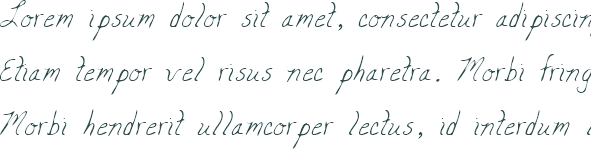 Lorem ipsum dolor sit amet, consectetur adipiscin
Etiam tempor vel risus nec pharetra. Morbi fring
Morbi hendrerit ullamcorper lectus, id interdum